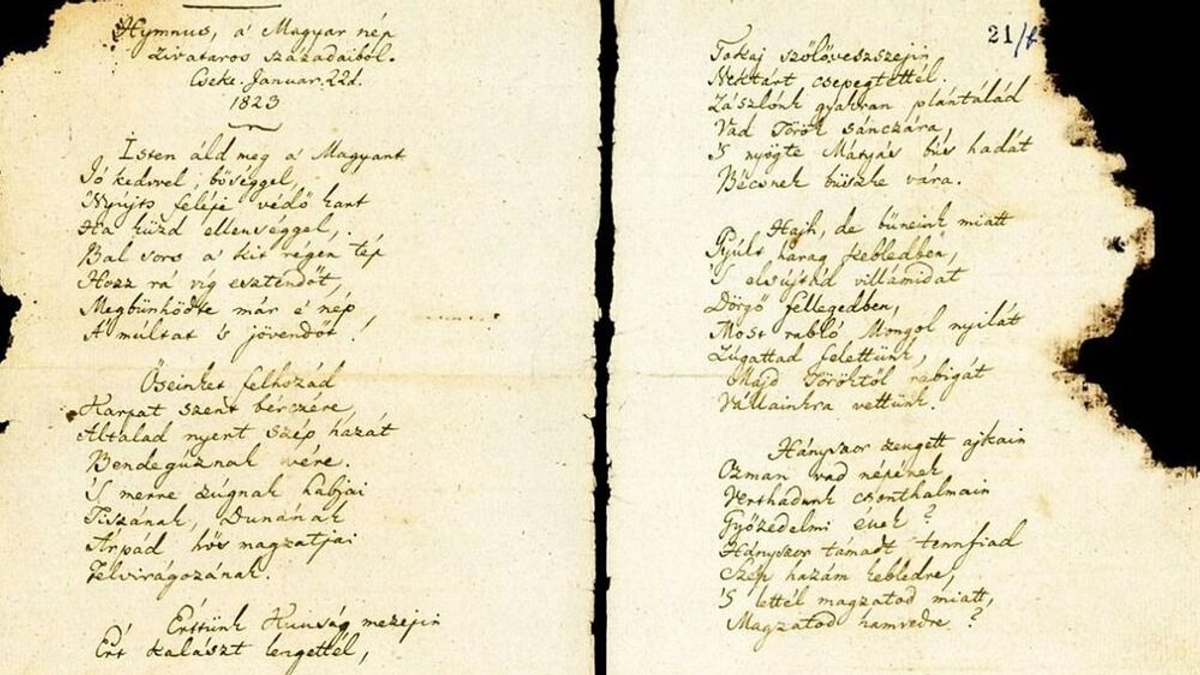 Hymnus, a' Magyar nép
zivataros századaiból.
Cseke. Januar. 22d.
1823
Isten áld meg a' Magyart
Jó kedvvel, bőséggel,
Nyújts feléje védő kart
Ha küzd ellenséggel,
Bal sors a' kit régen tép
Hozz rá víg esztendőt,
Megbűnhődte már e' nép
A' múltat 's jövendőt!
Őseinket felhozád
Kárpát szent bérczére,
Általad nyert szép hazát
Bendegúznak vére.
'S merre zúgnak habjai
Tiszának, Dunának
Árpád hős magzatjai
Felvirágozának.
Értünk Kunság mezejin
Ért kalászt lengettél,
21/1
Tokaj szőlővesszejin
Nektárt csepegtettél.
Zászlónk gyakran plántálád
Vad Török sánczára,
'S nyögte Mátyás bús hadát
Bécsnek büszke vára.
Hajh, de bűneink miatt
Gyúlt harag kebledben,
'S elsújtád villámidat
Dörgő fellegedben,
Most rabló Mongol nyilát
Zúgattad felettünk,
Majd Töröktől rabigát
Vállainkra vettünk.
Hányszor zengett ajkain
Ozman vad népének
Verthadunk csonthalmain
Győzedelmi ének?
Hányszor támadt tennfiad
Szép hazám kebledre,
'S lettél magzatod miatt,
Magzatod hamvedre?